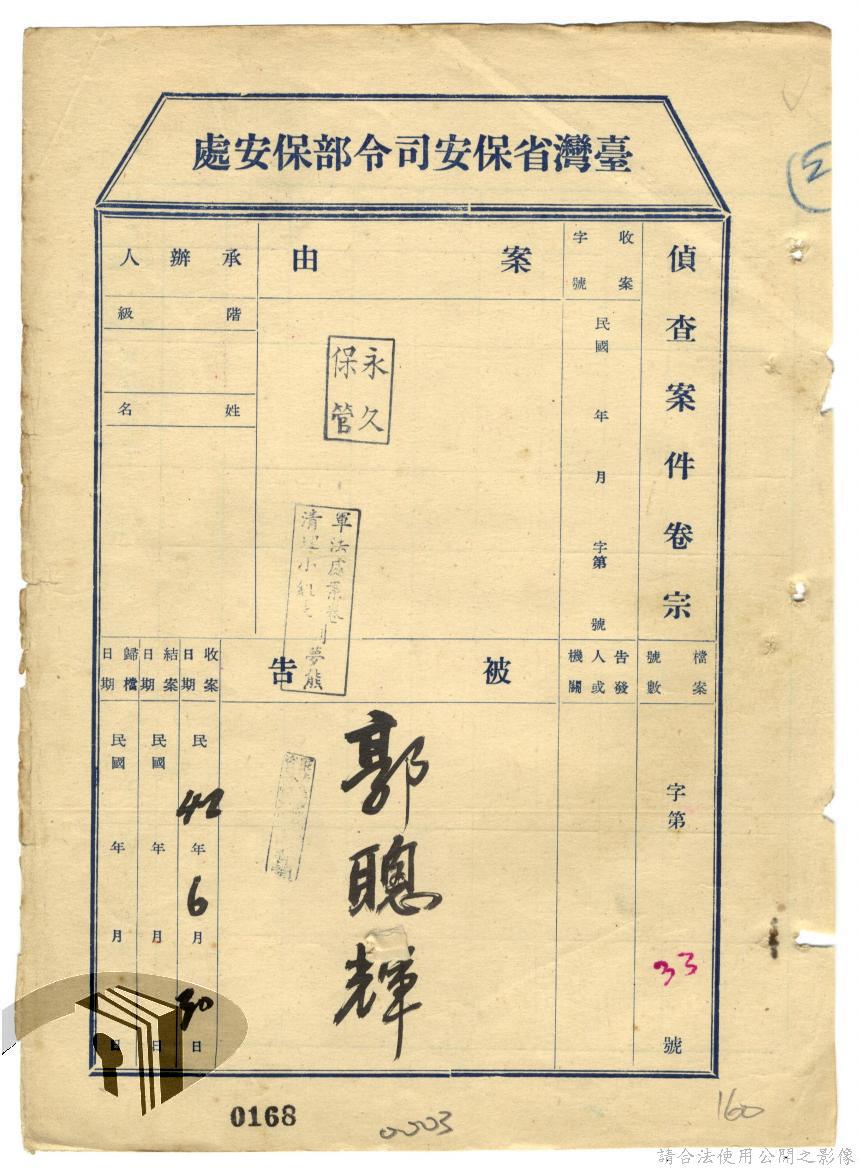 臺灣省保安司令部保安處
偵查案件卷宗
收案字號
民國 年 月 字第 號
案由
永久
保管
承辦人
階級
姓名
檔案號數
字第 33 號
告發人或機關
被告
郭聰輝
收案日期
民 42 年 6 月 30 日
結案日期
民國 年 月 日
歸檔日期
民國 年 月 日
軍法處案卷
清理小組
夢熊
0168
0003
160
請合法使用公開之影像